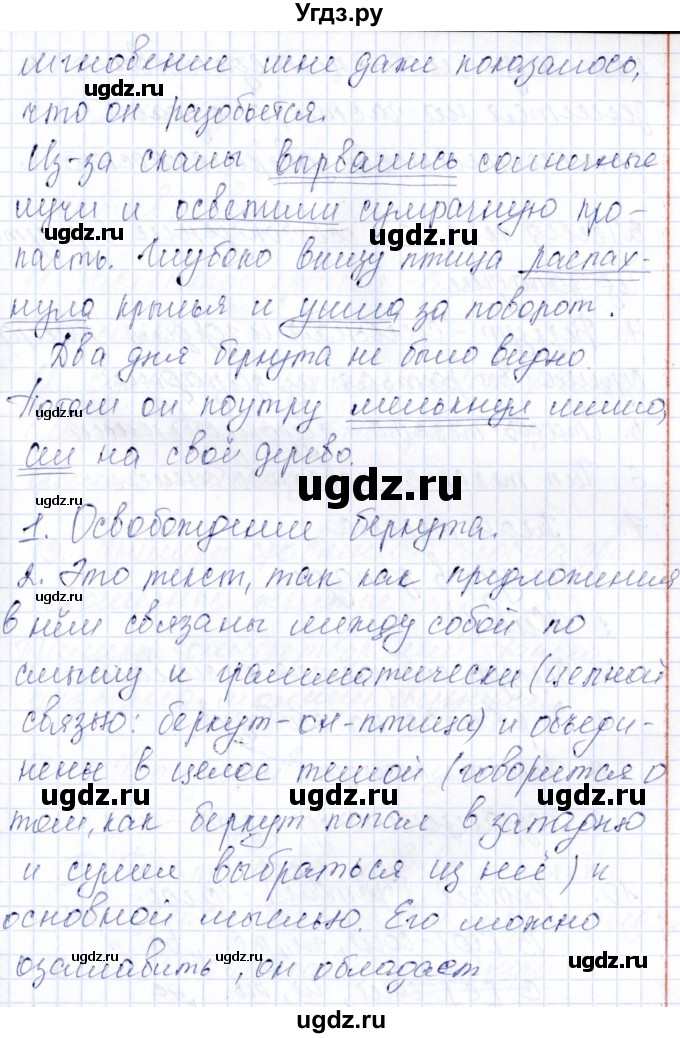 Угдз.ру
мгновение мне даже показалось,
что он разобьется.
Из-за скалы вырвались солнечные
лучи и осветили сумрачную про-
пасть. Глубоко внизу птица распах-
нула крылья и ушла за поворот.
Два дня беркута не было видно.
Потом он поутру мелькнул мимо,
сел на своё дерево.
1. Освобождение беркута.
2. Это текст, так как предложения
в нём связаны между собой по
смыслу и грамматически (цепной
связью: беркут-он-птица) и объеди-
нены в целое темой (говорится о
том, как беркут попал в западню
и сумел выбраться из неё) и
основной мыслью. Его можно
озаглавить, он обладает
ugdz.ru